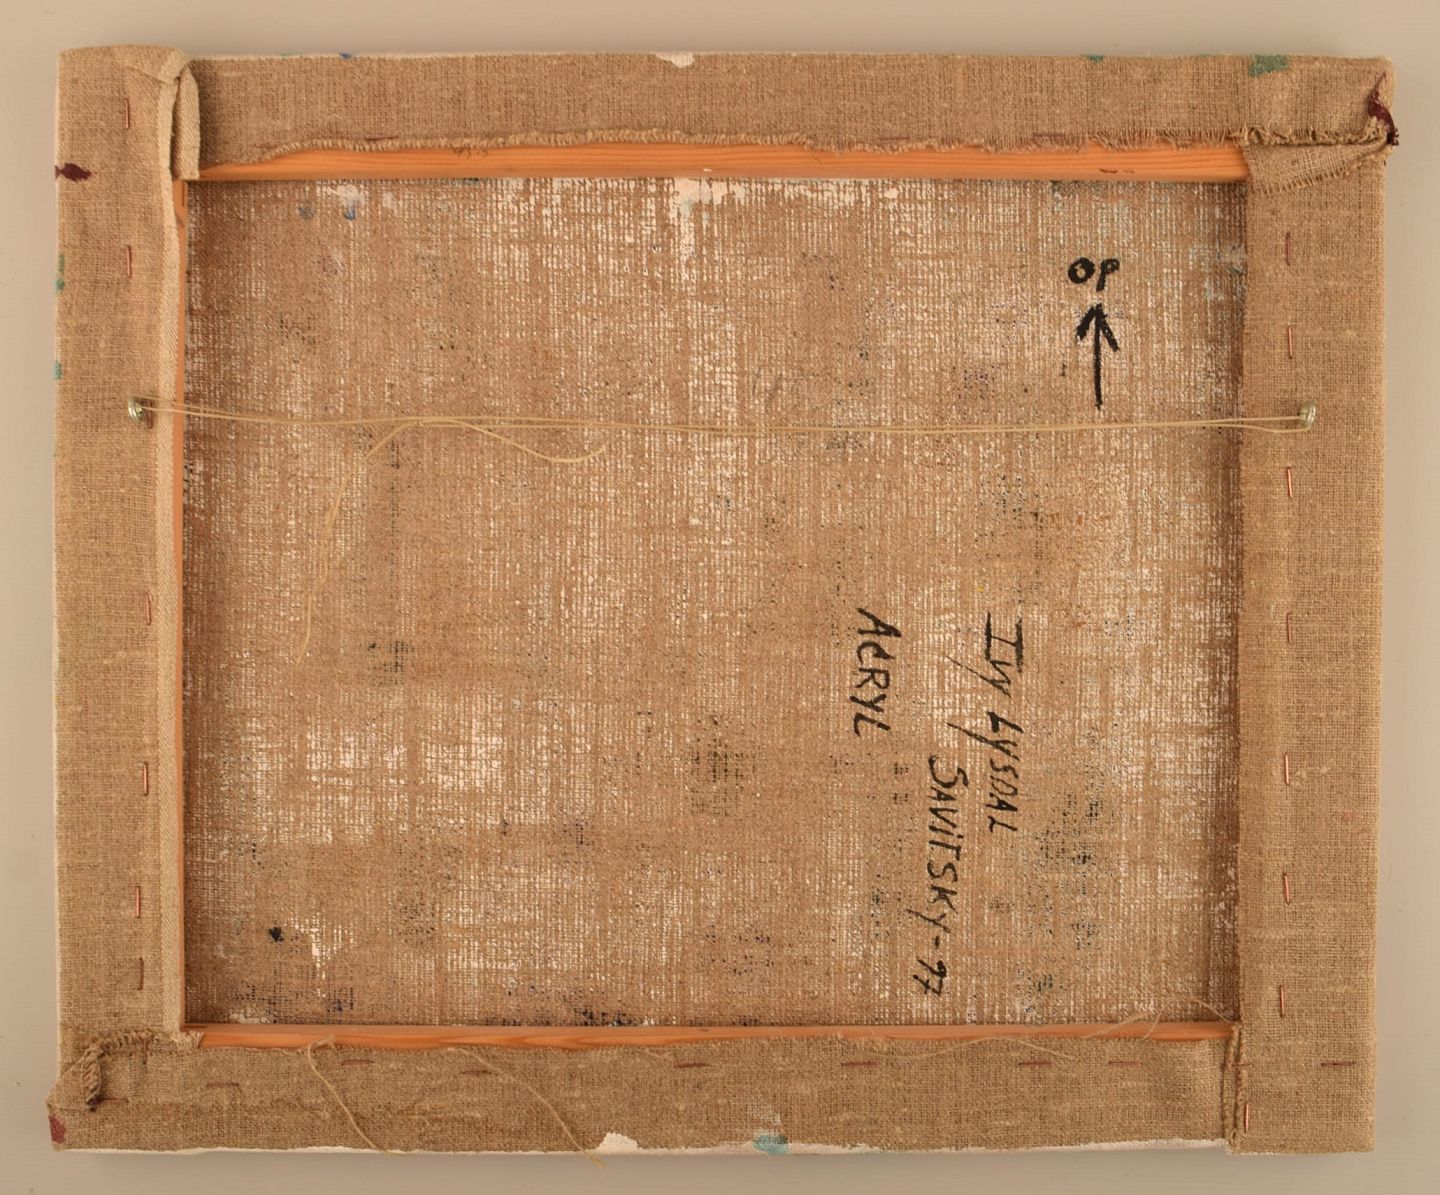 OP
Ivy Lysdal
Savitsky-97
Acryl